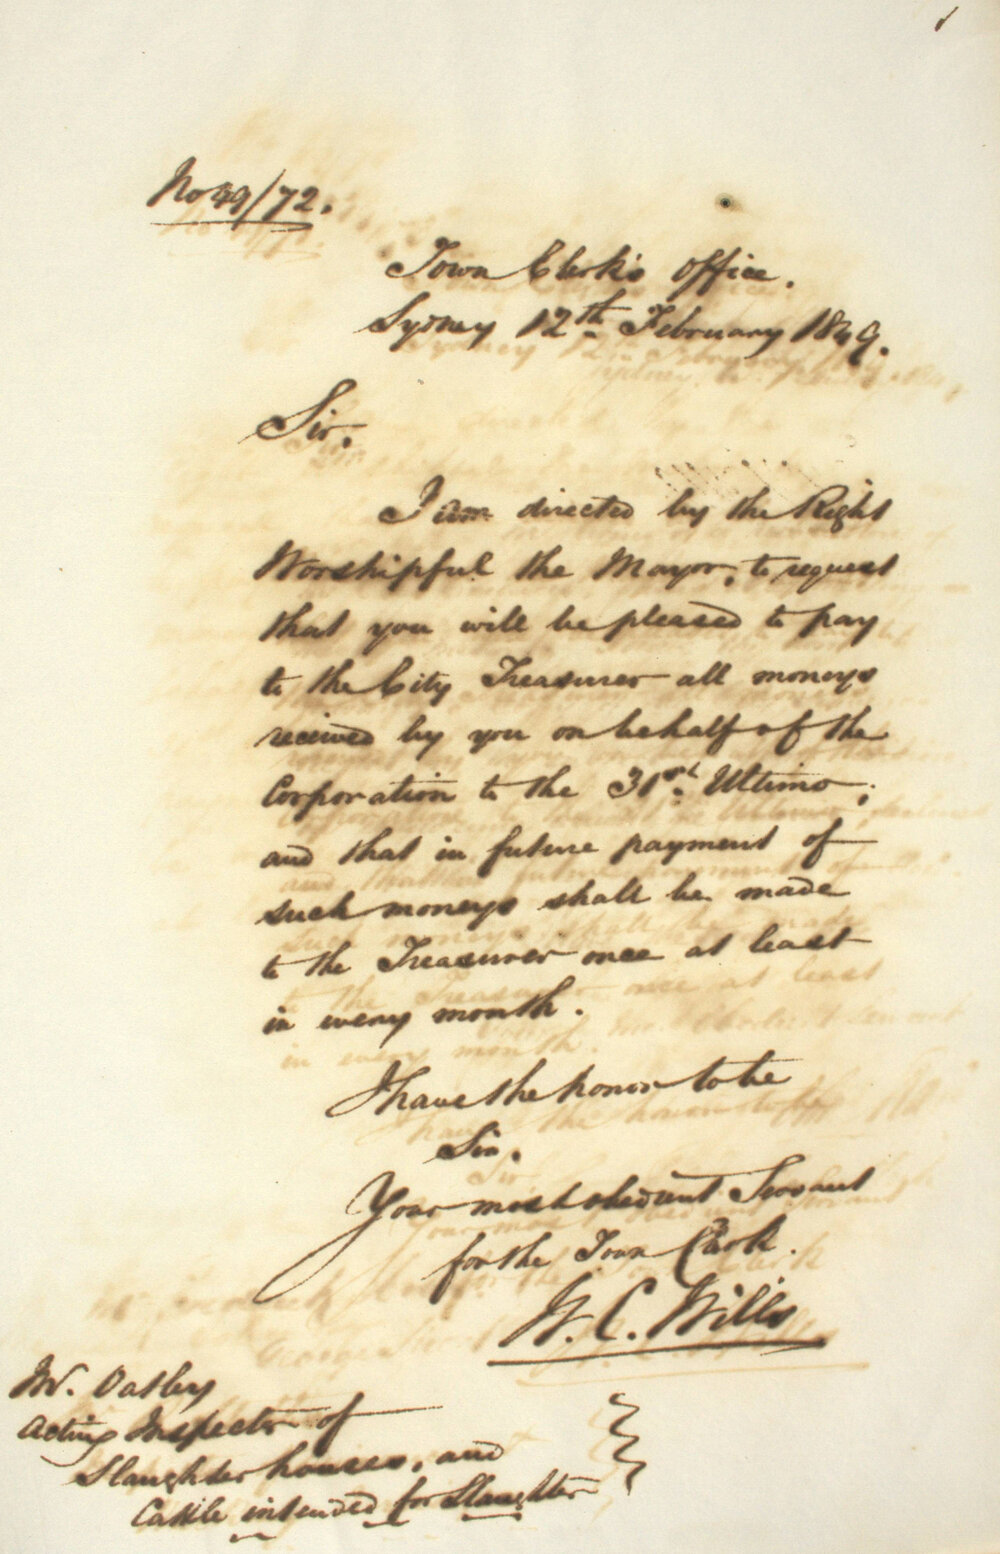 No 49/72.
Town Clerk's Office.
Sydney 12th February 1849.
Sir,
I am directed by the Right
Worshipful the Mayor, to request
that you will be pleased to pay
to the City Treasurer all moneys
received by you on behalf of the
Corporation to the 31st Ultimo,
and that in future payment of
such moneys shall be made
to the Treasurer once at least
in every month.
I have the honor to be
Sir,
Your most obedient Servant
for the Town Clerk.
W. C. Wills
Mr. Oatley
Acting Inspector of
Slaughter houses, and
Cattle intended for Slaughter